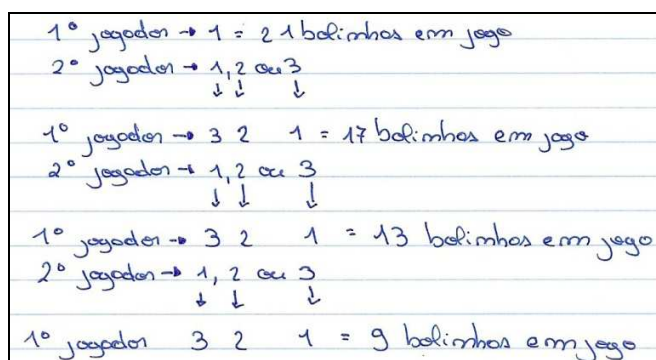 1º jogador → 1 = 21 bolinhas em jogo
2º jogador → 1, 2 ou 3
↓ ↓ ↓
1º jogador → 3 2 1 = 17 bolinhas em jogo
2º jogador → 1, 2 ou 3
↓ ↓ ↓
1º jogador → 3 2 1 = 13 bolinhas em jogo
2º jogador → 1, 2 ou 3
↓ ↓ ↓
1º jogador 3 2 1 = 9 bolinhas em jogo